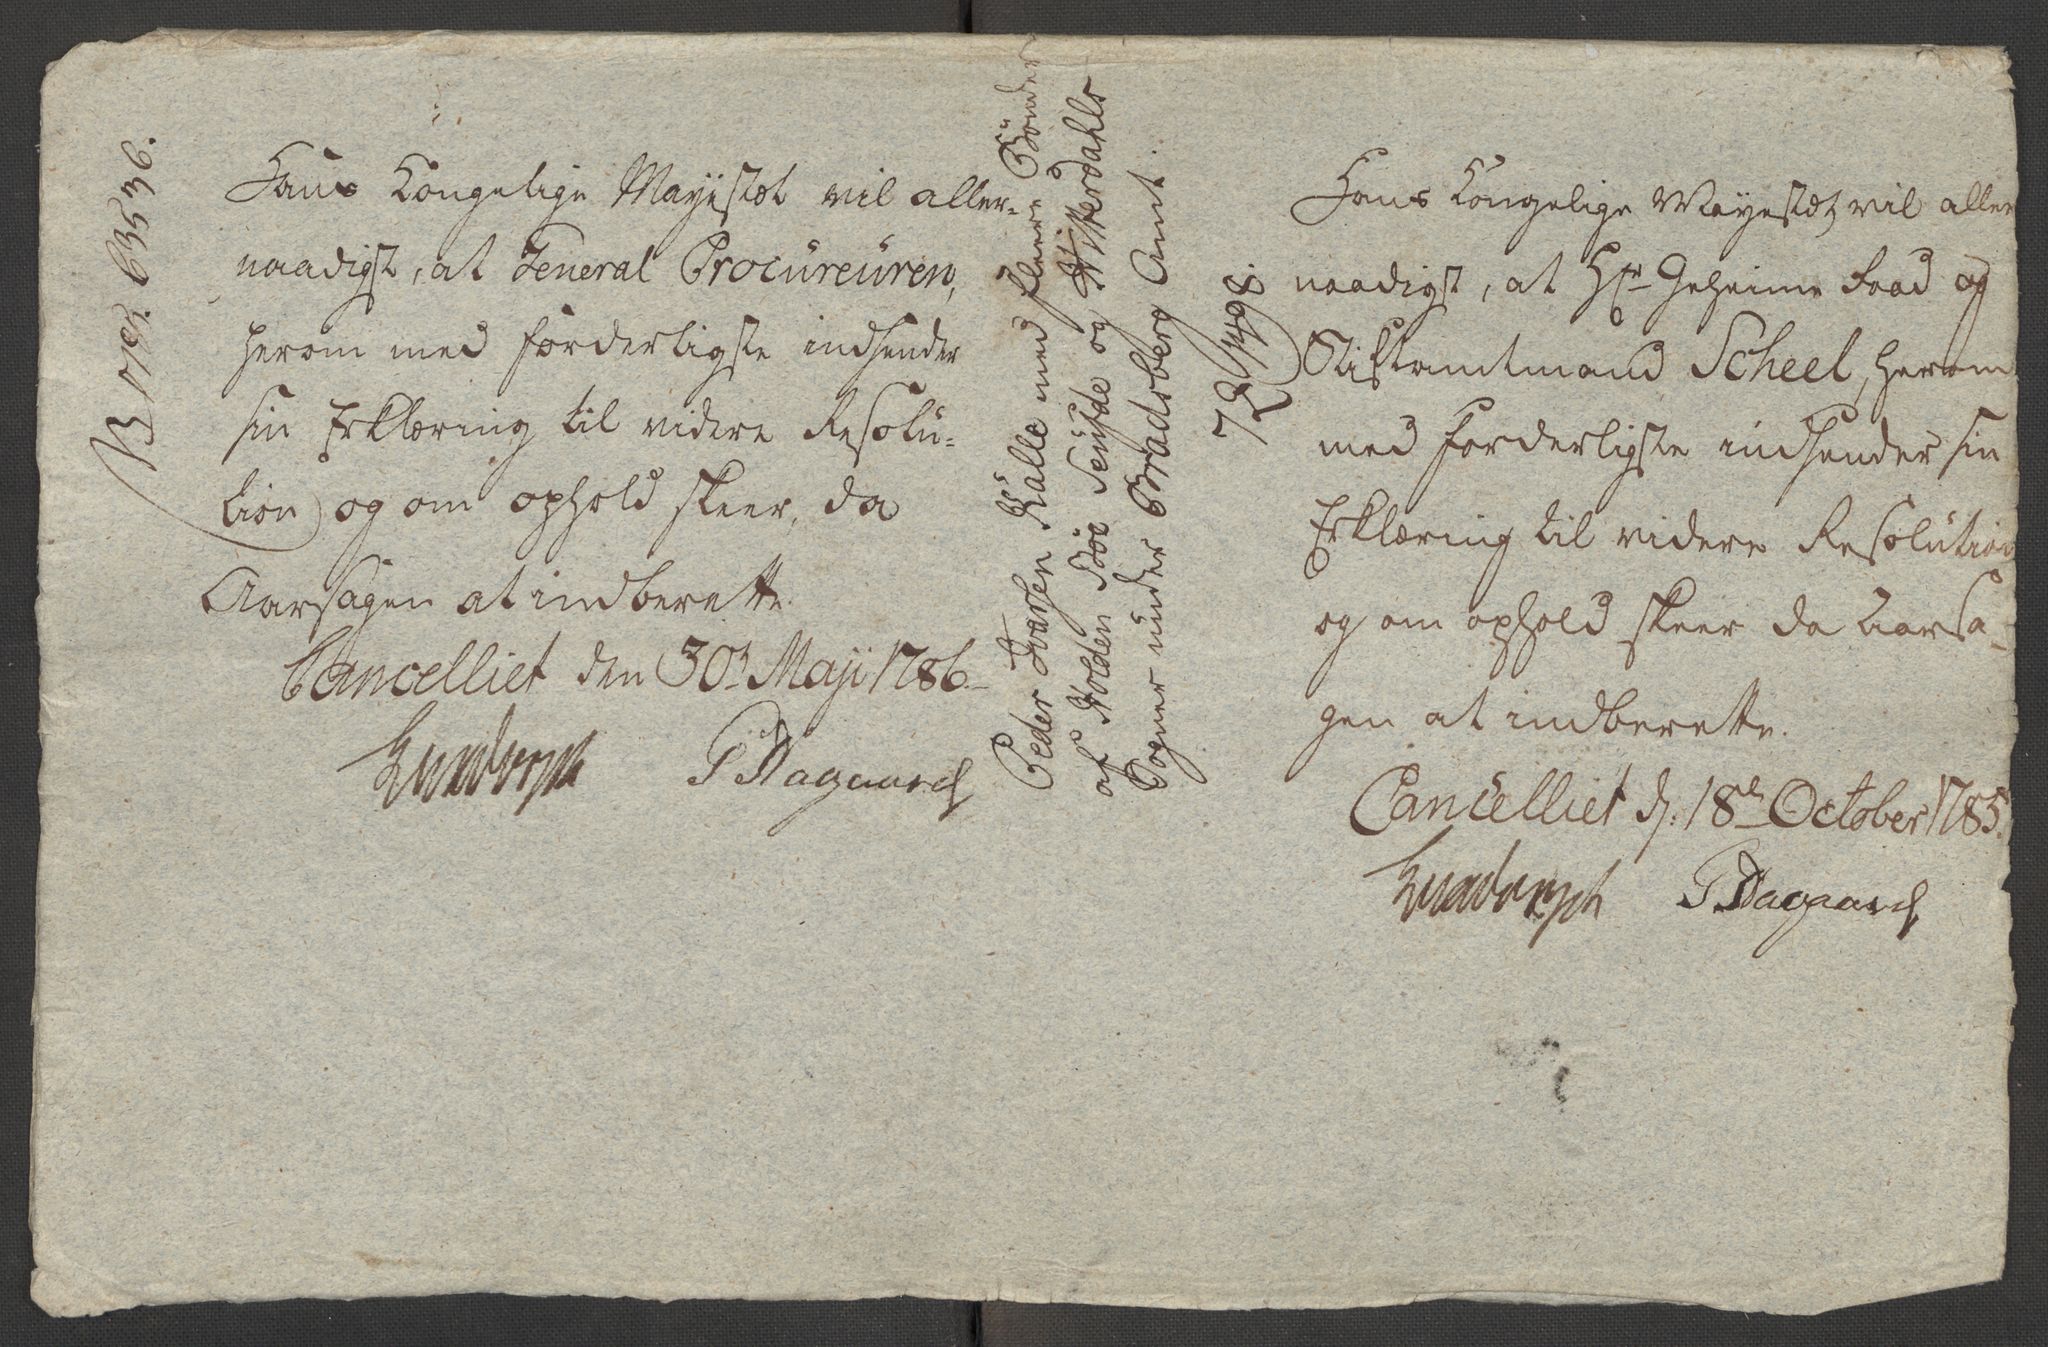 B 1785. 635 536.
Hans Kongelige Mayestæt vil aller-
naadigst, at General Procureuren,
herom med forderligste indsender
sin Erklæring til videre Resolu-
tion og om ophold skeer, da
Aarsagen at indberette.
Cancelliet den 30t Maji 1786.
Luxdorph P Aagaard
Peder Ivarsen Kalle med fleere Bönder
af Holden Söe Seufde og Hitterdahls
Sogner under Bradsberg Amt.
Hans Kongelige Mayestæt vil aller
naadigst, at Hr. Geheime Raad og
Stiftamtmand Scheel, herom
med forderligste indsender sin
Erklæring til videre Resolution
og om ophold skeer da Aarsa-
gen at indberette.
Cancelliet d. 18de October 1785.
Luxdorph P Aagaard